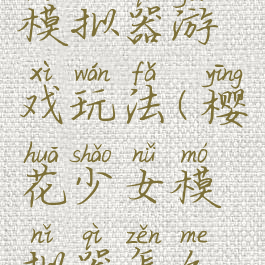 模拟器游
xì wán fǎ yīng
戏玩法(樱
huā shǎo nǚ mó
花少女模
nǐ qì zěn me
拟器怎么